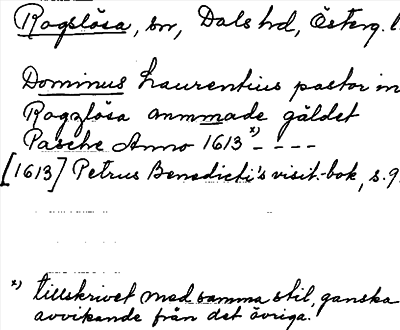 Rogslösa, sn, Dals hd, Österg. l.
Dominus Laurentius pastor in
Rogzlösa ammade gäldet
Pasche Anno 1613 *) - - - -
[1613] Petrus Benedicti's visit.-bok, s. 9
*) tillskrivet med samma stil, ganska
avvikande från det övriga.